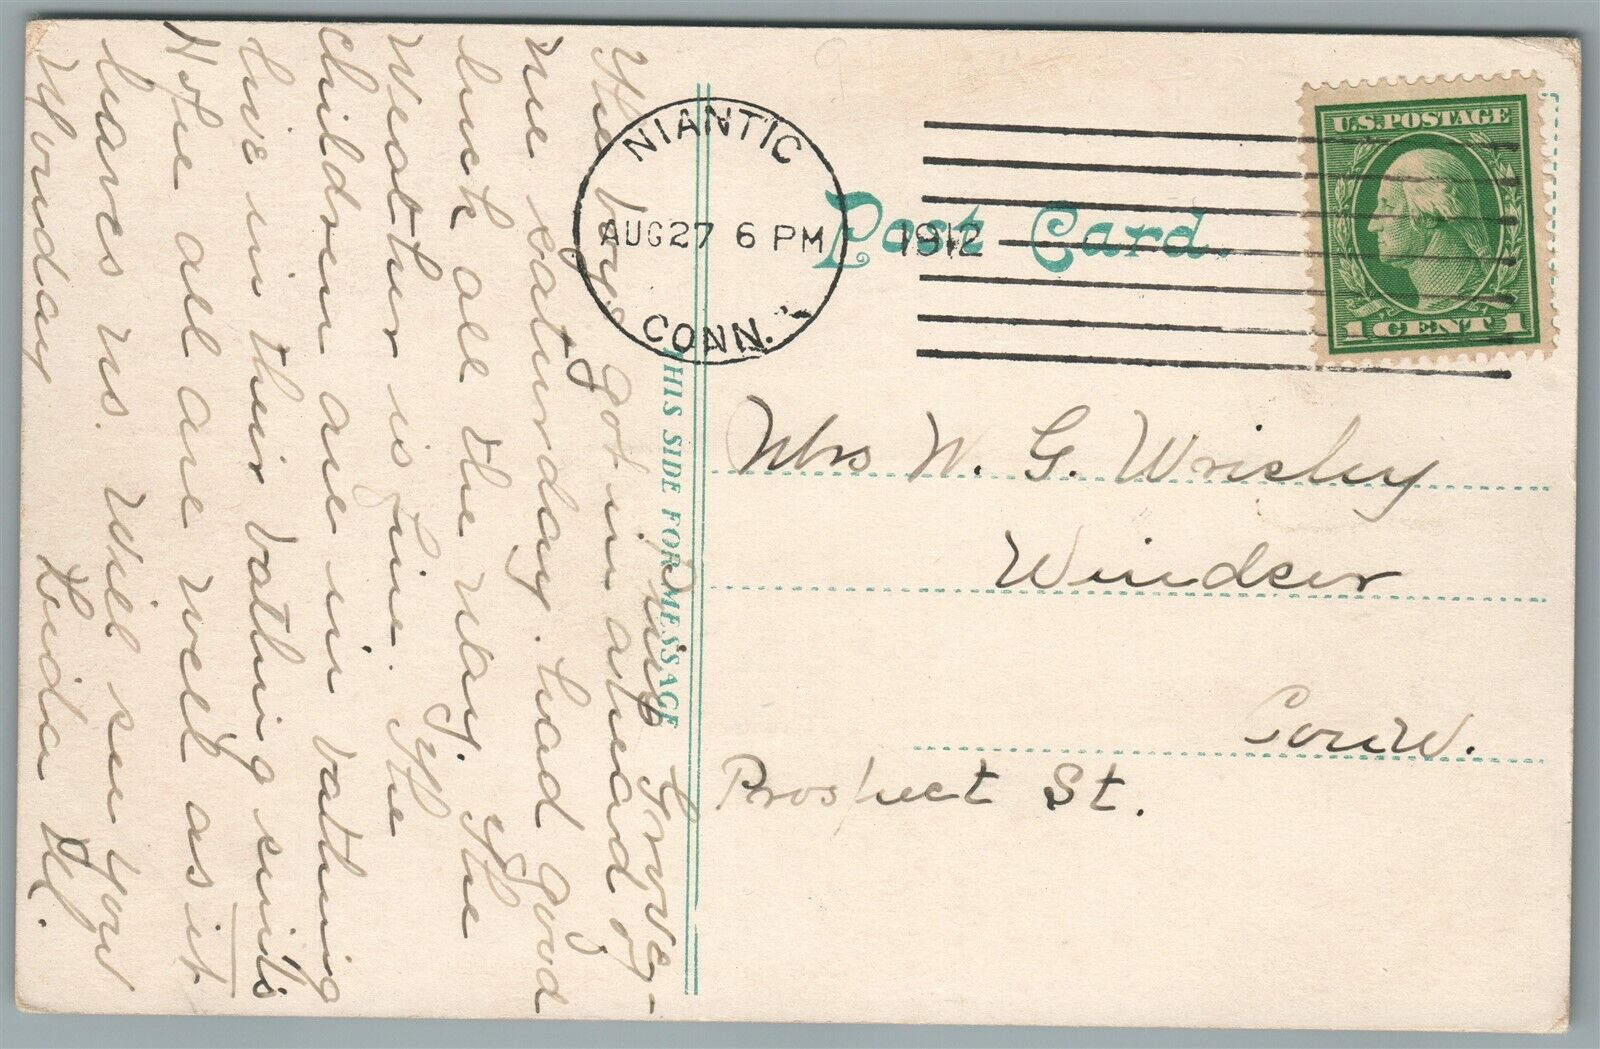 NIANTIC
AUG 27 6 PM 1912
CONN.
U.S. POSTAGE
1 CENT 1
Post Card.
THIS SIDE FOR MESSAGE
Mrs W. G. Wrisley
Windsor
Conn.
Prospect St.
Grove
The boys got in ahead of
me saturday. had good
luck all the way. The
Weather is fine. The
children are in bathing
live in their bathing suits
Hope all are well as it
leaves us. Will see you
Monday